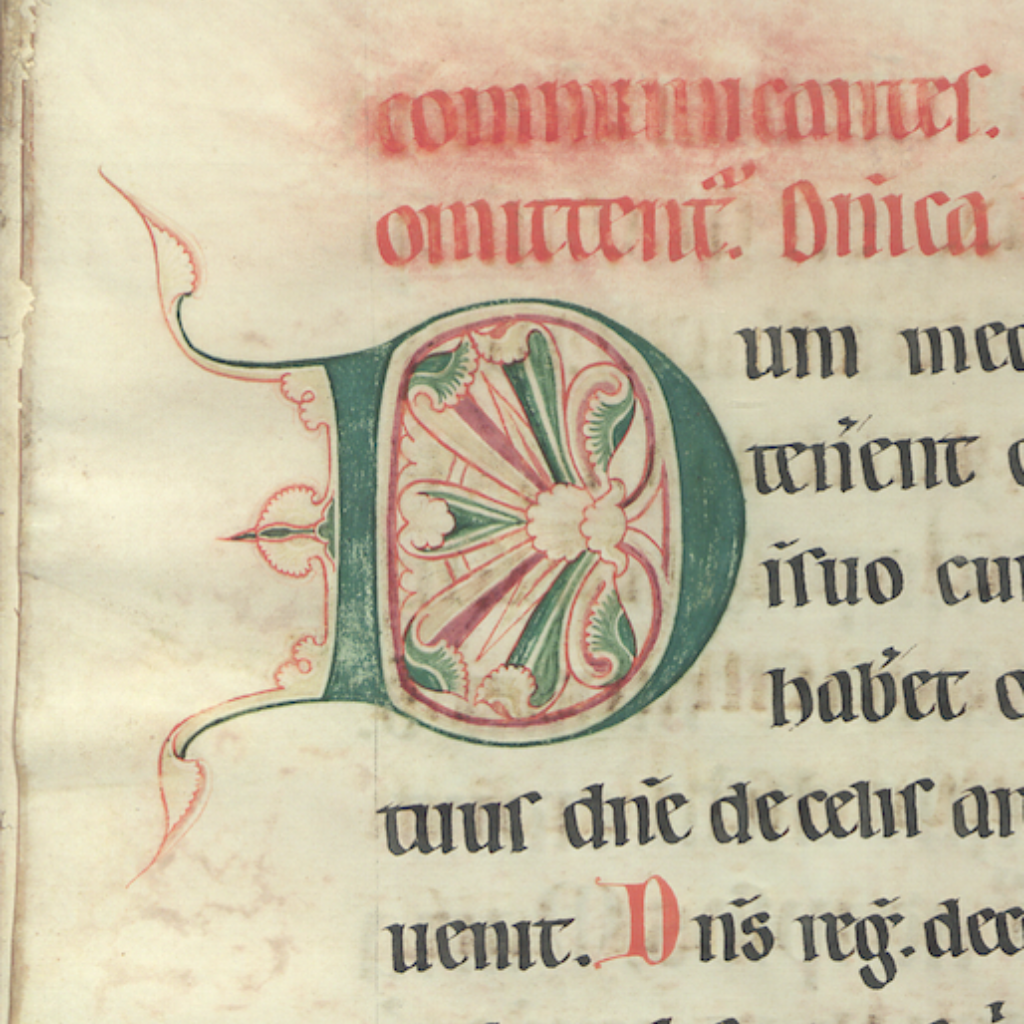 communicantes.
omittent̃. Dñica
Dum med
teñent
ĩsuo cu
hab̃et
tuus dñe de celis
uenit. Dñs reg̃. dec